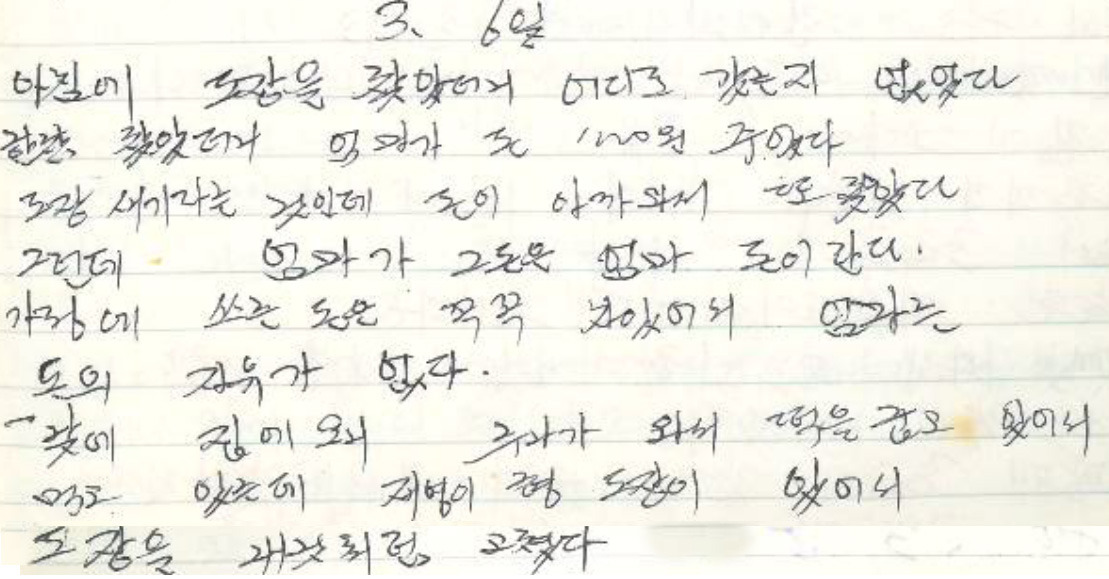 3. 6일
아침에 도장을 찾았더니 어디로 갔는지 없었다
한참 찾았더니 엄마가 돈 1000원 주었다
도장 새기라는 것인데 돈이 아까와서 또 찾았다
그런데 엄마가 그돈은 엄마 돈이란다.
가정에 쓰는 돈은 꼭꼭 있어서 엄마는
돈의 자유가 없다.
낮에 집에 오니 누나가 와서 떡을 굽고 있어서
먹고 있는데 재영이 형 도장이 있어서
도장을 내것처럼 고쳤다